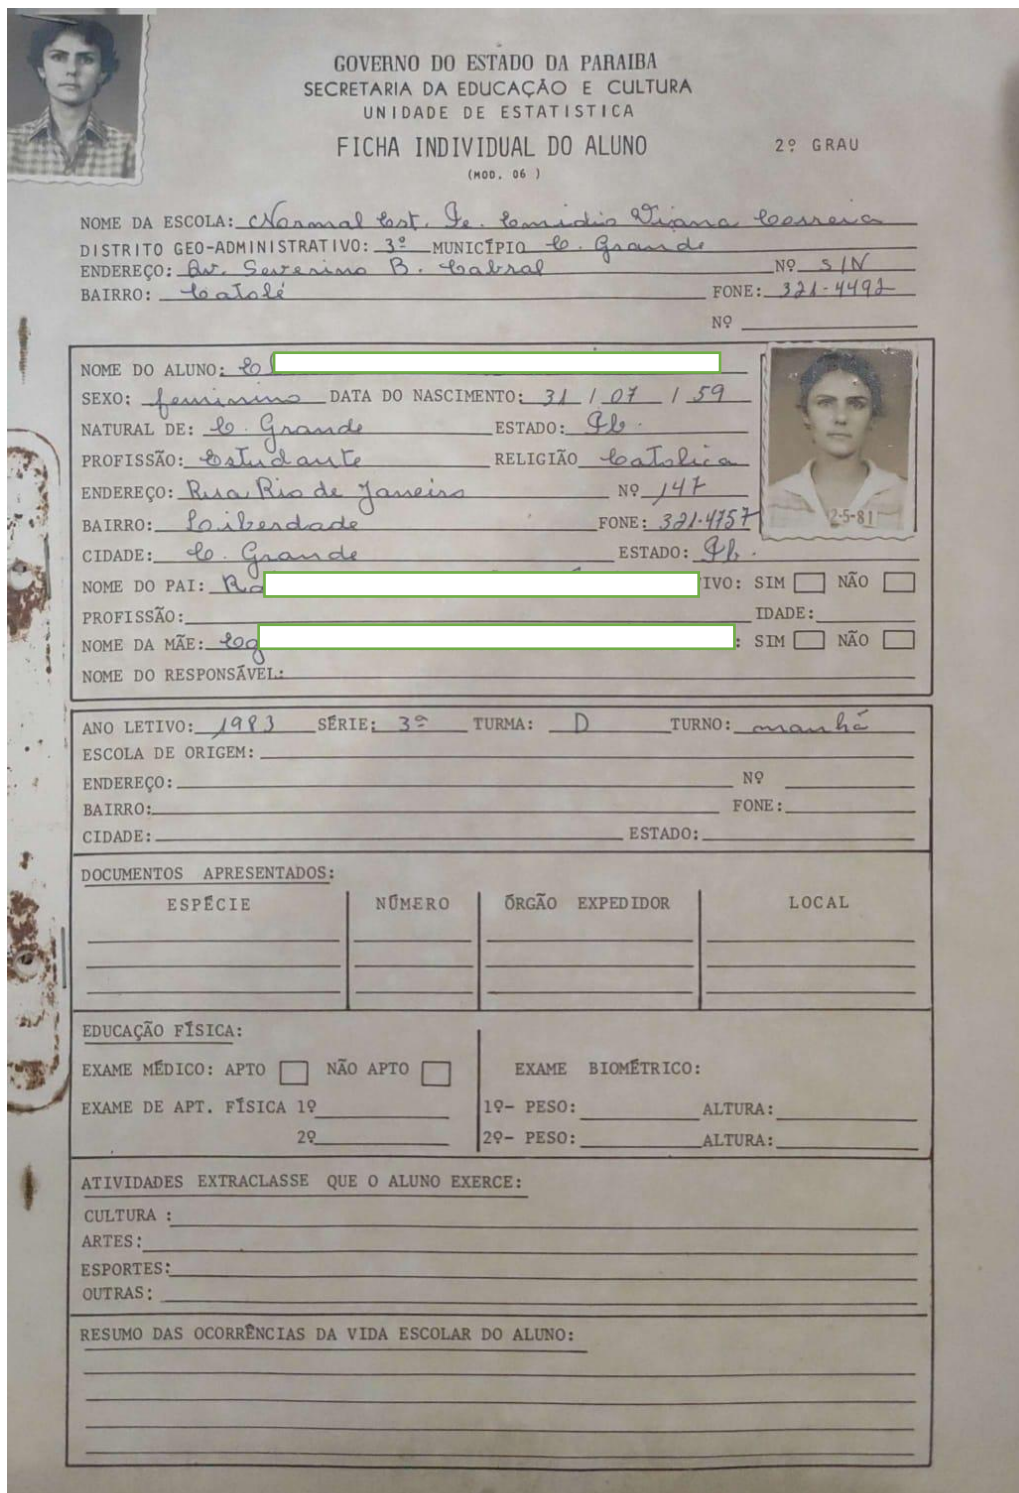 GOVERNO DO ESTADO DA PARAIBA
SECRETARIA DA EDUCAÇÃO E CULTURA
UNIDADE DE ESTATISTICA
FICHA INDIVIDUAL DO ALUNO 2º GRAU
(MOD. 06 )
NOME DA ESCOLA: Normal Est. Pe. Emidio Viana Correia
DISTRITO GEO-ADMINISTRATIVO: 3º MUNICÍPIO C. Grande
ENDEREÇO: Av. Severino B. Cabral Nº S/N
BAIRRO: Catolé FONE: 321-4492
Nº
NOME DO ALUNO:
SEXO: feminino DATA DO NASCIMENTO: 31 / 07 / 59
NATURAL DE: C. Grande ESTADO: Pb.
PROFISSÃO: Estudante RELIGIÃO Catolica
ENDEREÇO: Rua Rio de Janeiro Nº 147
BAIRRO: Liberdade FONE: 321-4757
12-5-81
CIDADE: C. Grande ESTADO: Pb.
NOME DO PAI: TIVO: SIM NÃO
PROFISSÃO: IDADE:
NOME DA MÃE: : SIM NÃO
NOME DO RESPONSÁVEL:
ANO LETIVO: 1983 SÉRIE: 3º TURMA: D TURNO: manhã
ESCOLA DE ORIGEM:
ENDEREÇO: Nº
BAIRRO: FONE:
CIDADE: ESTADO:
DOCUMENTOS APRESENTADOS:
ESPÉCIE NÚMERO ÓRGÃO EXPEDIDOR LOCAL
EDUCAÇÃO FÍSICA:
EXAME MÉDICO: APTO NÃO APTO EXAME BIOMÉTRICO:
EXAME DE APT. FÍSICA 1º 1º- PESO: ALTURA:
2º 2º- PESO: ALTURA:
ATIVIDADES EXTRACLASSE QUE O ALUNO EXERCE:
CULTURA :
ARTES:
ESPORTES:
OUTRAS:
RESUMO DAS OCORRÊNCIAS DA VIDA ESCOLAR DO ALUNO: